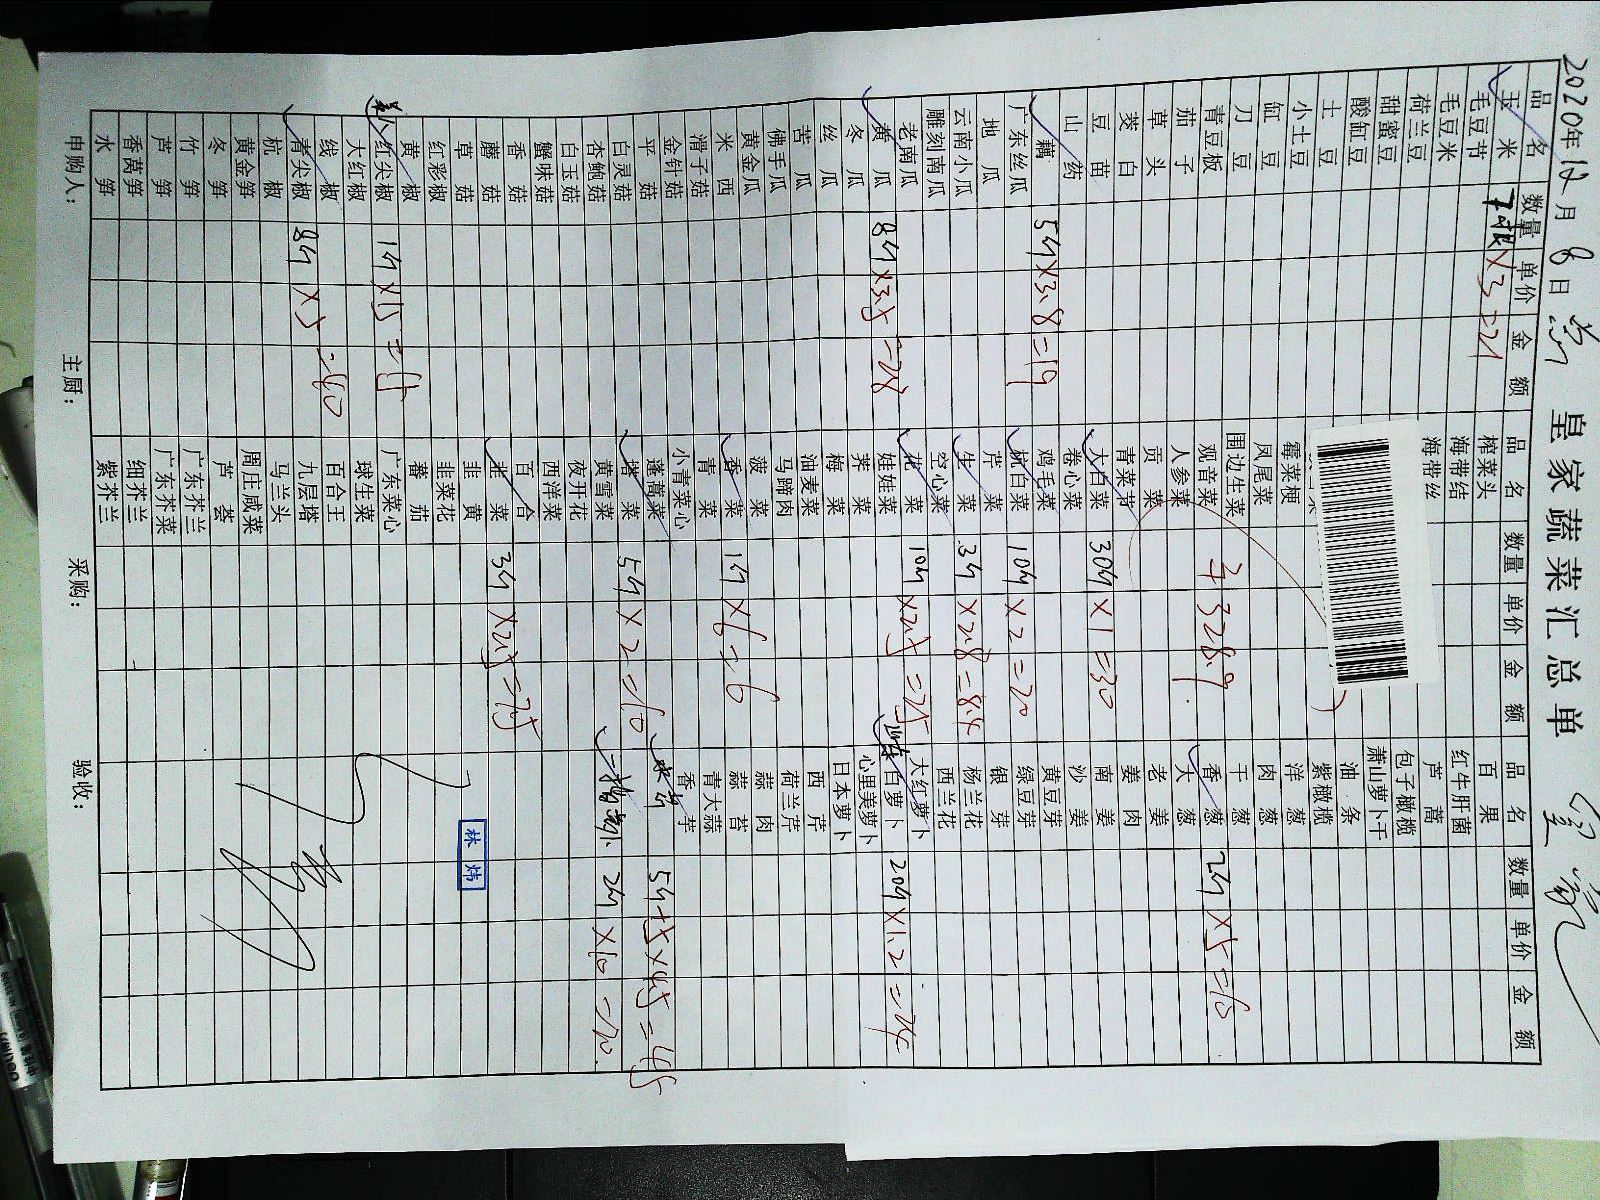 2020年12月8日 皇家蔬菜汇总单
品名 数量 单价 金额 品名 数量 单价 金额 品名 数量 单价 金额
玉米 7根×3=21 榨菜头 百果
毛豆节 海带结 红牛肝菌
毛豆米 海带丝 芦蒿
荷兰豆 包子橄榄
甜蜜豆 萧山萝卜干
酸缸豆 油条
土豆 霉菜梗 紫橄榄
小土豆 凤尾菜 洋葱
缸豆 围边生菜 肉葱
刀豆 观音菜 328.9 干葱
青豆板 人参菜 香葱 2斤×5=10
茄子 贡菜 大葱
草头 青菜节 老姜
茭白 大白菜 30斤×1=30 姜肉
豆苗 卷心菜 南姜
山药 鸡毛菜 沙姜
藕 5斤×3.8=19 杭白菜 10斤×2=20 黄豆芽
广东丝瓜 芹菜 绿豆芽
地瓜 生菜 3斤×2.8=8.4 银芽
云南小瓜 空心菜 杨兰花
雕刻南瓜 花菜 10斤×2.5=25 西兰花
老南瓜 娃娃菜 大红萝卜
黄瓜 8斤×3.5=28 荠菜 白萝卜 20斤×1.2=24
冬瓜 梅菜 心里美萝卜
丝瓜 油麦菜 日本萝卜
苦瓜 马蹄肉 西芹
佛手瓜 菠菜 荷兰芹
黄金瓜 香菜 1斤×6=6 蒜肉
米西 青菜 蒜苔
滑子菇 小青菜心 青大蒜
金针菇 蓬蒿菜 香芋
平菇 塔菜 5斤×2=10
白灵菇 黄雪菜 2斤×10=20
杏鲍菇 夜开花
白玉菇 西洋菜
蟹味菇 百合
香菇 韭菜 3斤×2.5=7.5
蘑菇 韭黄
草菇 韭菜花
红彩椒 蕃茄
黄椒 广东菜心
小红尖椒 1斤×15=15 球生菜
大红椒 百合王
线椒 九层塔
青尖椒 8斤×5=40 马兰头
杭椒 周庄咸菜
黄金笋 芦荟
冬笋 广东芥兰
竹笋 广东芥菜
芦笋 细芥兰
香莴笋 紫芥兰
水笋
申购人： 主厨： 采购： 验收：
林炜